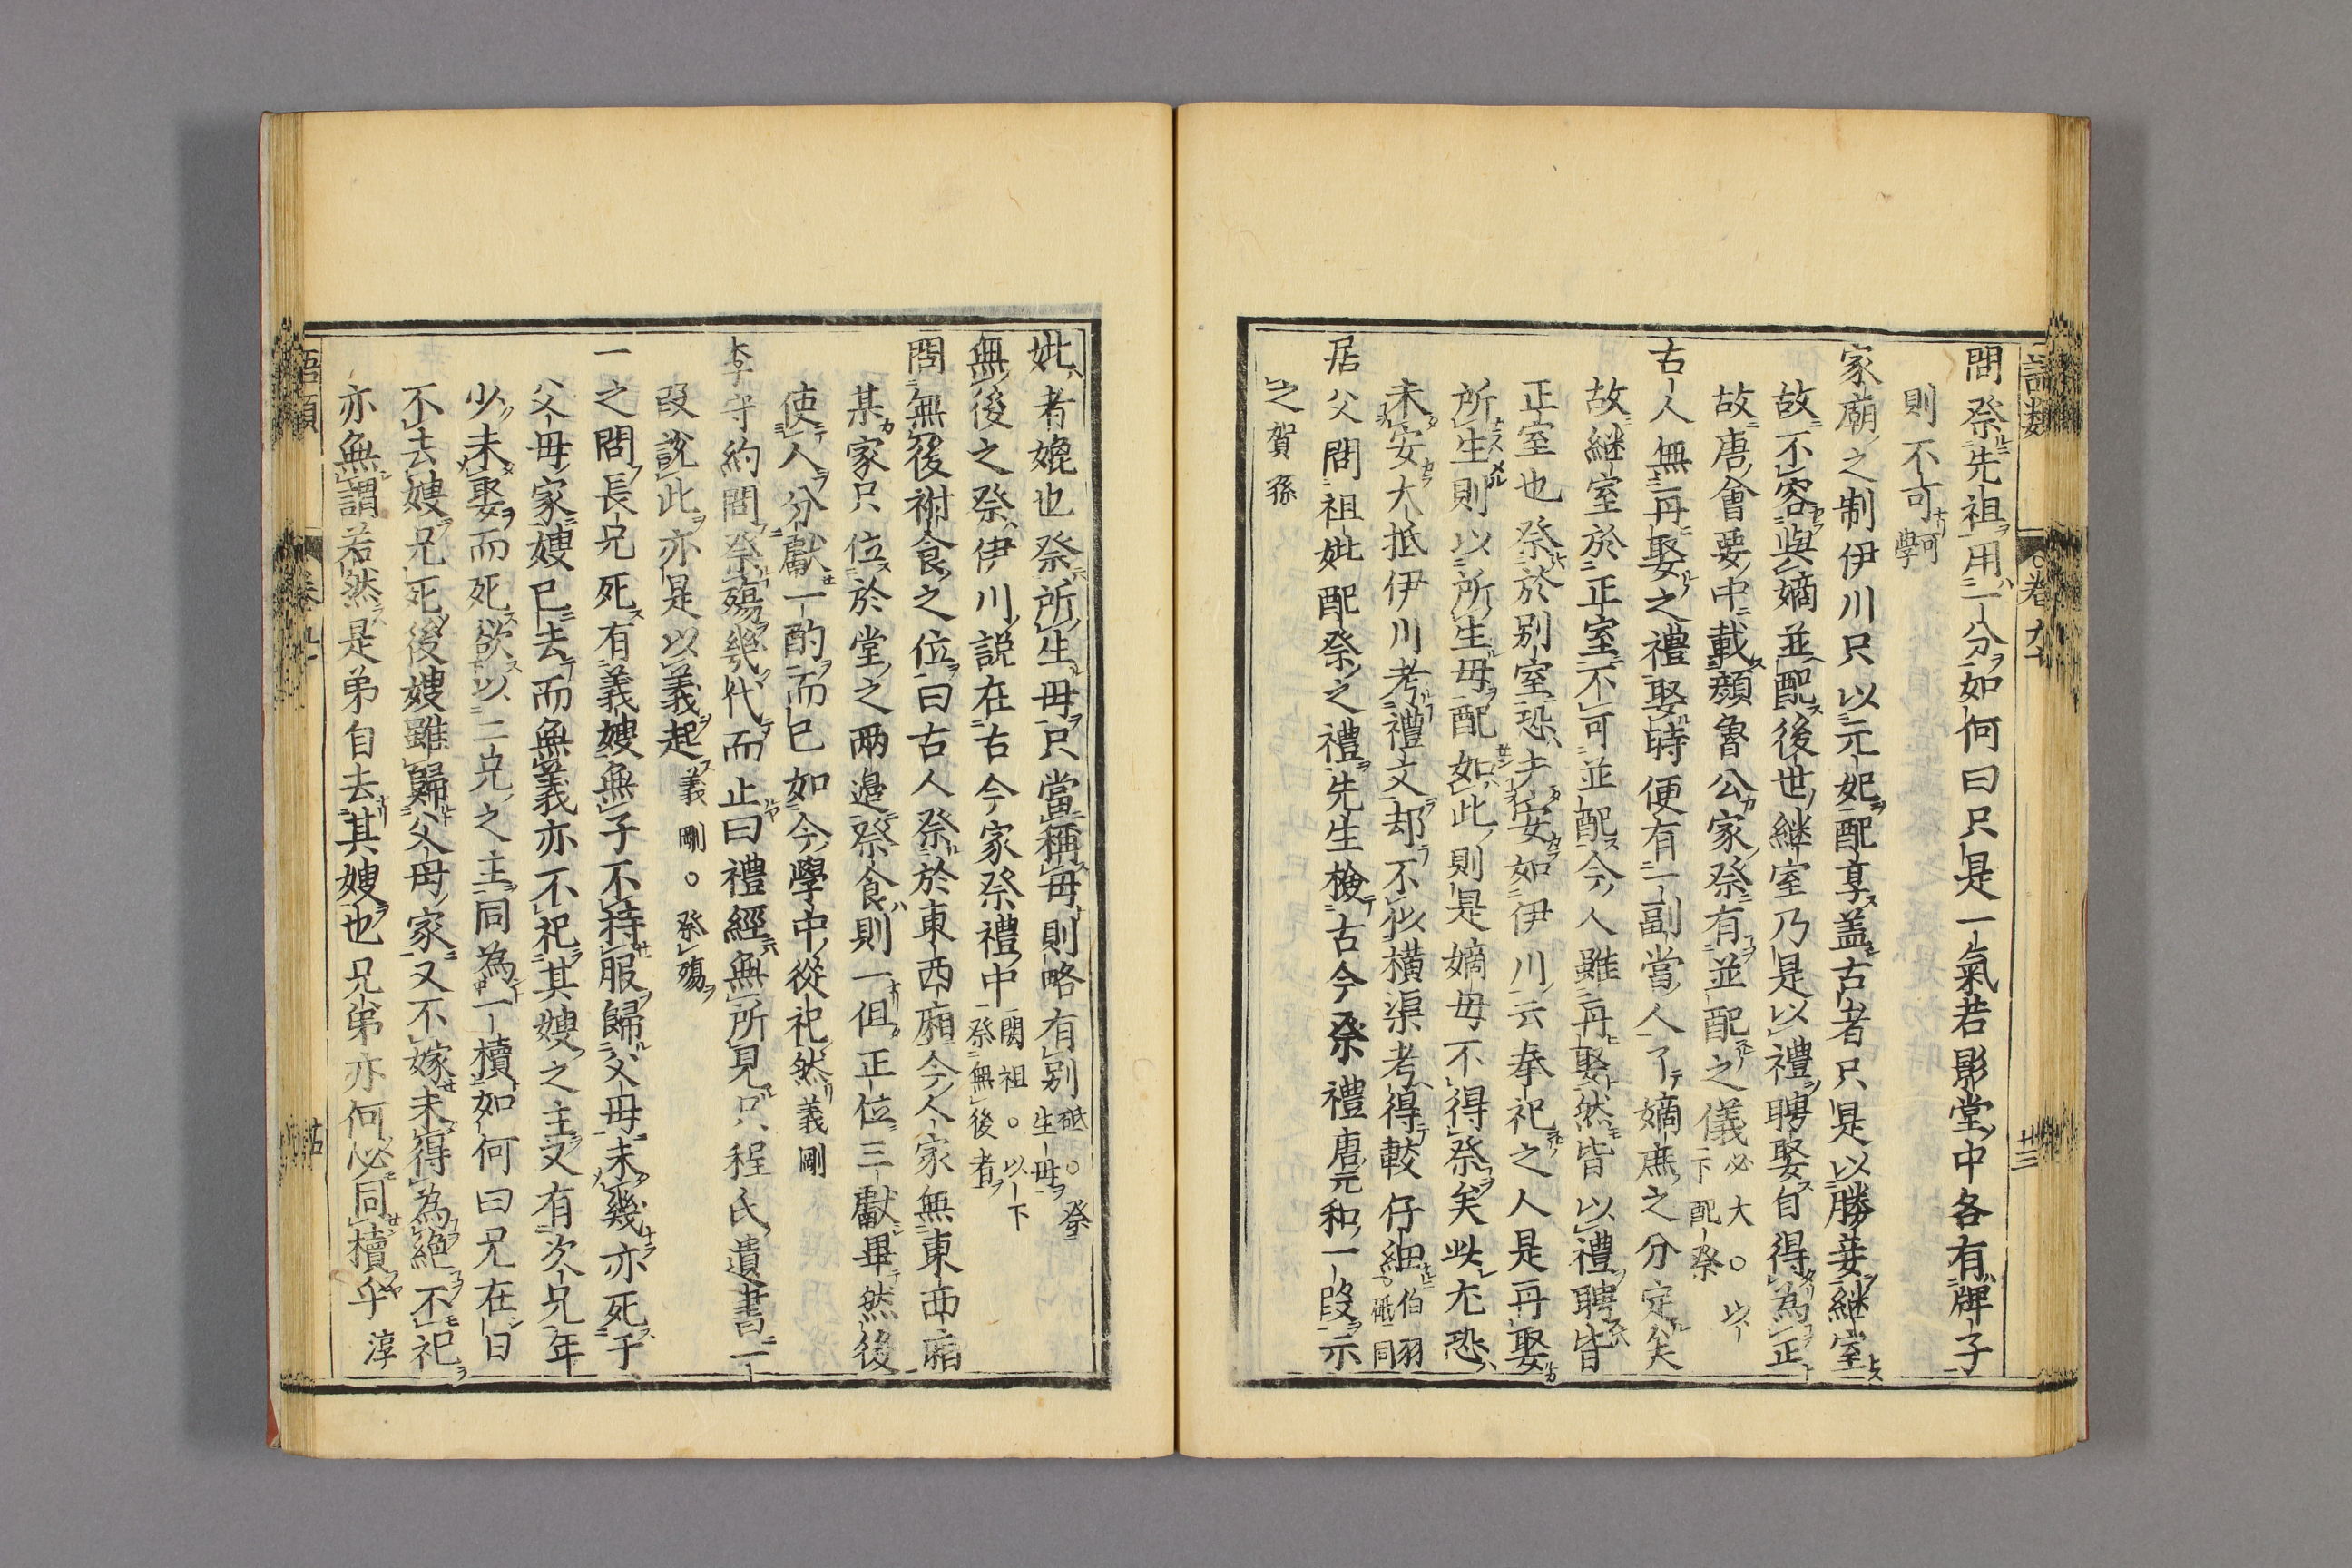 語類　○卷九十　廿三
問祭先祖用一分如何曰只是一氣若影堂中各有牌子
則不可可學
家廟之制伊川只以元妃配享盖古者只是以媵妾継室
故不容與嫡並配後世継室乃是以禮聘娶自得為正
故唐會要中載顔魯公家祭有並配之儀必大○以下配祭
古人無再娶之禮娶時便有一副當人了嫡庶之分定矣
故継室於正室不可並配今人雖再娶然皆以禮聘皆
正室也祭於别室恐未安如伊川云奉祀之人是再娶
所生則以所生母配如此則是嫡母不得祭矣此尤恐
未安大抵伊川考禮文却不似横渠考得較仔細伯羽砥同
居父問祖妣配祭之禮先生檢古今祭禮唐元和一段示
之賀孫
妣者媲也祭所生母只當稱母則略有别砥○祭生母
無後之祭伊川説在古今家祭禮中閎祖○以下祭無後者
問無後祔食之位曰古人祭於東西廂今人家無東西廂
某家只位於堂之兩邊祭食則一但正位三獻畢然後
使人分獻一酌而已如今學中從祀然義剛
李守約問祭殤幾代而止曰禮經無所見只程氏遺書一
段説此亦是以義起義剛○祭殤
一之問長兄死有義嫂無子不持服歸父母未幾亦死于
父母家嫂已去而無義亦不祀其嫂之主又有次兄年
少未娶而死欲以二兄之主同為一櫝如何曰兄在日
不去嫂兄死後嫂雖歸父母家又不嫁未得為絶不祀
亦無謂若然是弟自去其嫂也兄弟亦何必同櫝乎淳
語類　卷九十